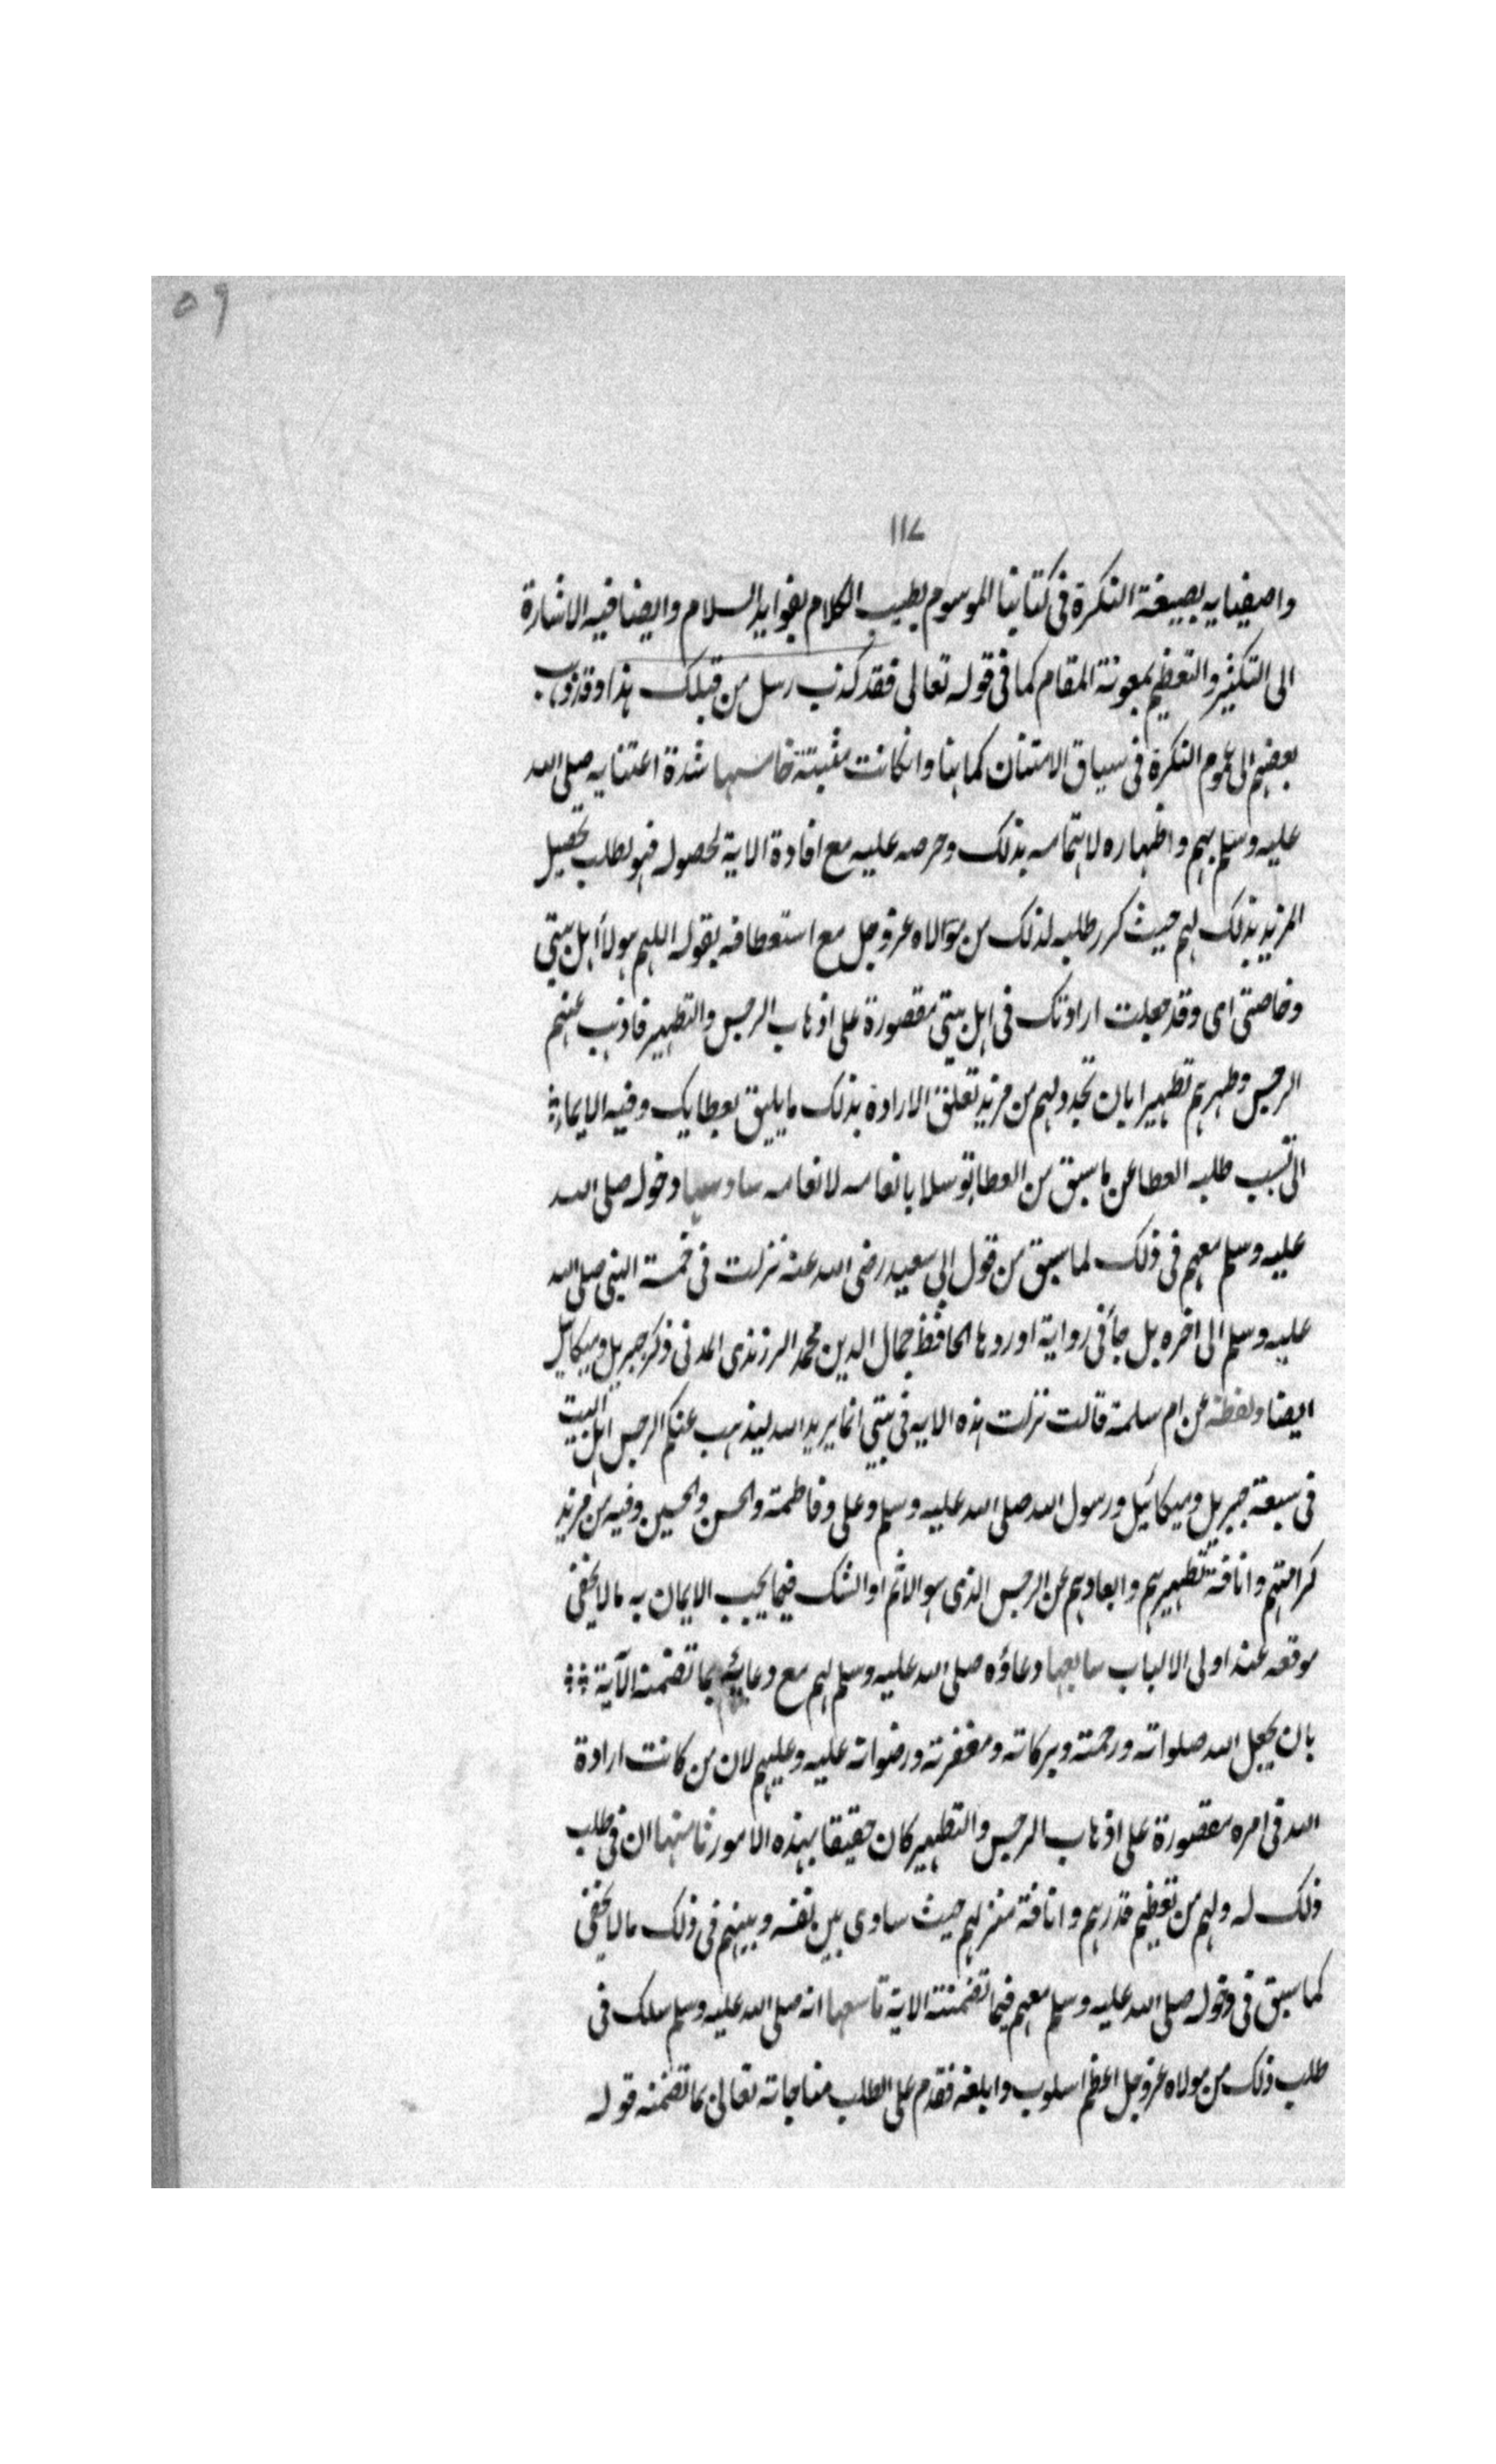 ٥٩
١١٧
واضفنا به بصيغة النكرة فى كتابنا الموسوم بطيب الكلام بفوايد السلام وايضا ففيه الاشارة
الى التكثير والتعظيم بمعونة المقام كما فى قوله تعالى فقد كذب رسل من قبلك هذا وقد ذهب
بعضهم الى عموم النكرة فى سياق الامتنان كما هنا وان كانت مثبتة خامسها شدة اعتنايه صلى الله
عليه وسلم بهم واظهاره لاهتمامه بذلك وحرصه عليه مع افادة الاية لحصوله فهو لطلب تحصيل
المزيد بذلك لهم حيث كرر طلبه لذلك من مولاه عز وجل مع استعطافه بقوله اللهم هولا اهل بيتى
وخاصتى اى وقد جعلت ارادتك فى اهل بيتى مقصورة على اذهاب الرجس والتطهير فاذهب عنهم
الرجس وطهرهم تطهيرا بان تجدد لهم من مزيد تعلق الارادة بذلك ما يليق بعطايك وفيه الايماء
الى تسبب طلبه العطا عن ما سبق من العطا توسلا بانعامه لانعامه سادسها دخوله صلى الله
عليه وسلم معهم فى ذلك لما سبق من قول ابى سعيد رضى الله عنه نزلت فى خمسة النبى صلى الله
عليه وسلم الى اخره بل جأ فى رواية اوردها الحافظ جمال الدين محمد الزرندى المدنى ذكر جبريل وميكائيل
ايضا ولفظه عن ام سلمة قالت نزلت هذه الايه فى بيتى انما يريد الله ليذهب عنكم الرجس اهل البيت
فى سبعة جبريل وميكائيل ورسول الله صلى الله عليه وسلم وعلى وفاطمة والحسن والحسين وفيه من مزيد
كرامتهم وانافة تطهيرهم وابعادهم عن الرجس الذى هو الاثم او الشك فيما يجب الايمان به ما لا يخفى
موقعه عند اولى الالباب سابعها دعاؤه صلى الله عليه وسلم لهم مع دعايه بما تضمنته الآية
بان يجعل الله صلواته ورحمته وبركاته ومغفرته ورضوانه عليه وعليهم لان من كانت ارادة
الله فى امره مقصورة على اذهاب الرجس والتطهير كان حقيقا بهذه الامور ثامنها ان فى طلب
ذلك له ولهم من تعظيم قدرهم وانافة منزلهم حيث ساوى بين نفسه وبينهم فى ذلك ما لا يخفى
كما سبق فى دخوله صلى الله عليه وسلم معهم فيما تضمنته الاية تاسعها انه صلى الله عليه وسلم سلك فى
طلب ذلك من مولاه عز وجل اعظم اسلوب وابلغه فقدم على الطلب مناجاته تعالى بما تضمنه قوله